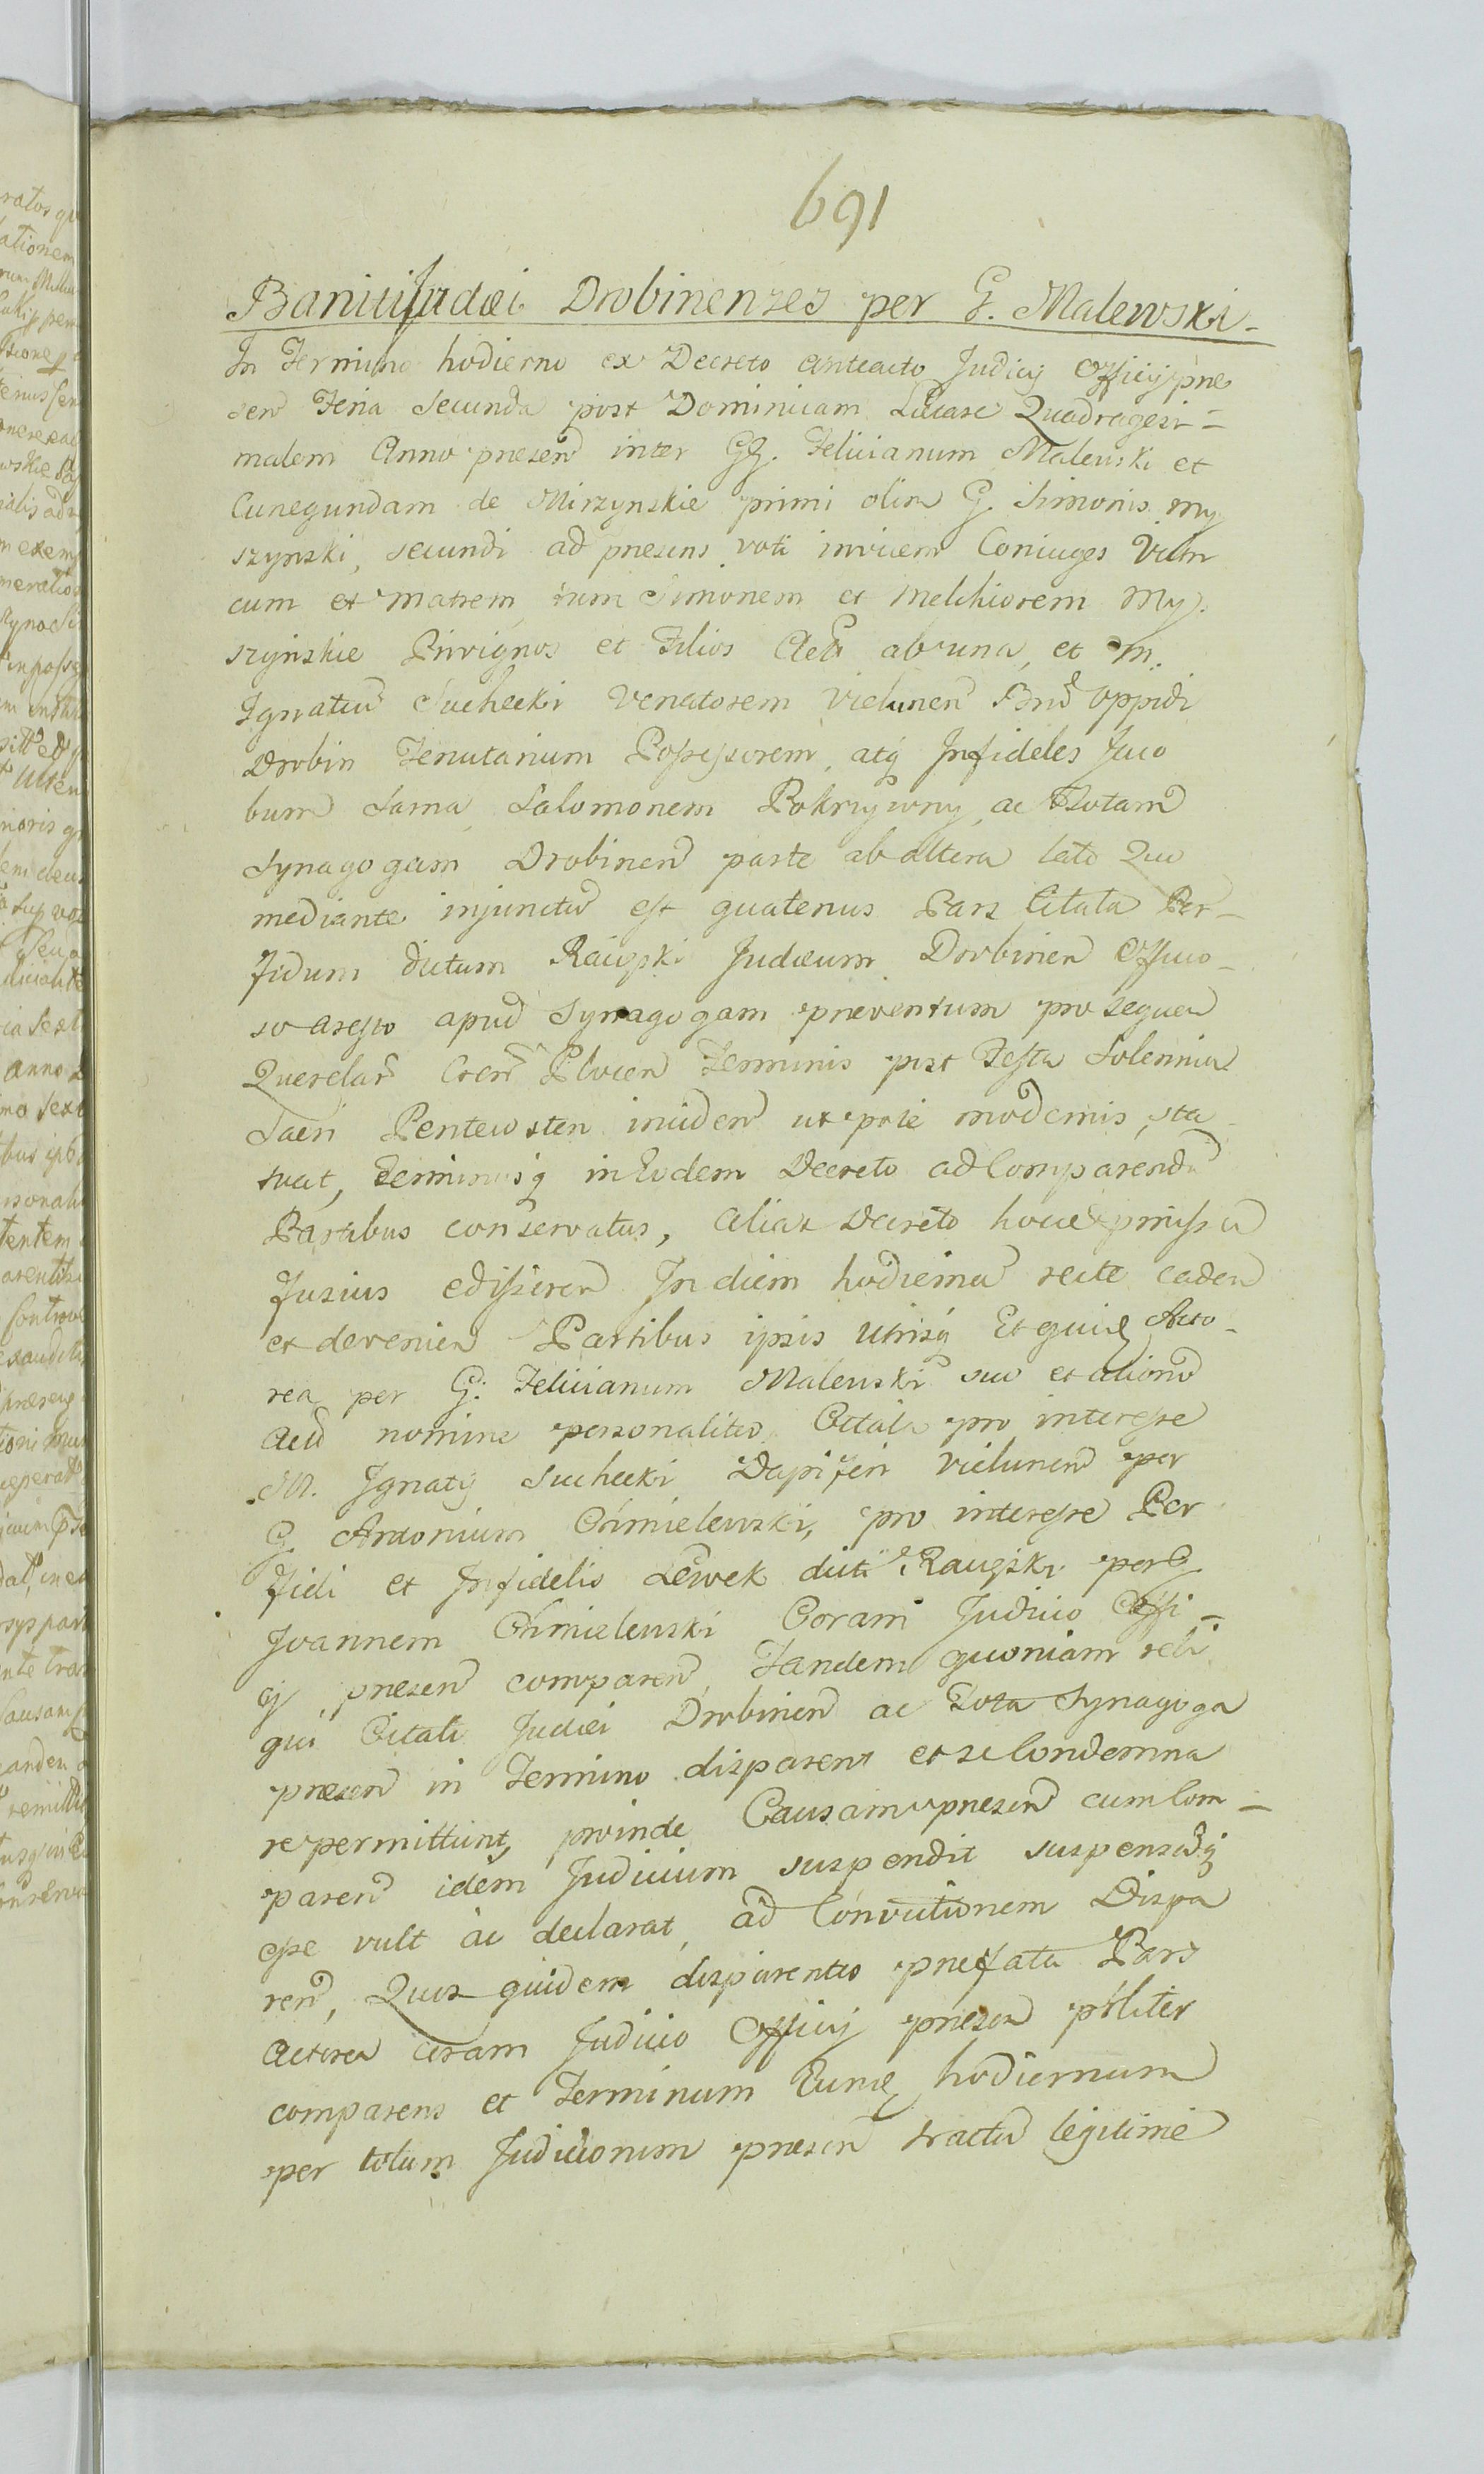 691
Baniti Judæi Drobinenses per G. Malewski
In Termino hodierno ex Decreto anteacto Judicij Officij præ
sen Feria Secunda post Dominicam Lætare Quadragesi=
malem Anno præsen inter GG. Felicianum Malewski et
Cunegundam de Mirzynskie primi olim G. Simonis My
szynski, secundi ad præsens voti invicem Coniuges Vitri
cum et Matrem, tum Simonem et Melchiorem My
szynskie Privignos et Filios Act ab una, et M.
Ignatiu Suchecki Venatorem Vielunen Bnd Oppidi
Drobin Tenutarium Possessorem, atq Infideles Jaco
bum Sama Salomonem Pokrzywny ac Totam
Synagogam Drobinen parte ab altera lato Quo
mediante injunctu est quatenus Pars Citata Per-
fidum dictum Raciyski Judæum Drobinen Officio-
so aresto apud Synagogam præventum pro sequen
Querelar Cren Plocen Terminis post Festa Solennia
Sacri Pentecosten inciden utpote modernis, sta
tuat, Terminusq in Eodem Decreto ad Comparendu
Partibus conservatus, alias Decreto hocce expressu
fusius edisseren In diem hodierna recte caden
et devenien Partibus ipsis Utrisq Et quidE Acto-
rea per G. Felicianum Malewski suo et alioru
Acu nomine personaliter Citata pro interesse
M. Ignatij Suchecki Dapiferi Vielunen per
G. Antonium Chmielewski, pro interesse Per
fidi et Infidelis Lewek dicti Raciyski per G
Joannem Chmielewski Coram Judicio Offi=
cij præsen comparen, Tandem quoniam reli
qui Citati Judæi Drobinen ac Tota Synagoga
præsen in Termino disparent et se Condemna
re permittunt, proinde Causam præsen cum Com=
paren idem Judicium suspendit suspensaq
esse vult ac declarat, ad Convictionem Dispa
ren, Quis quidem disparentes præfata Pars
Actorea coram Judicio Officij præsen psliter
comparens et Terminum Eunde hodiernum
per totum Judiciorum præsen tractu legitime